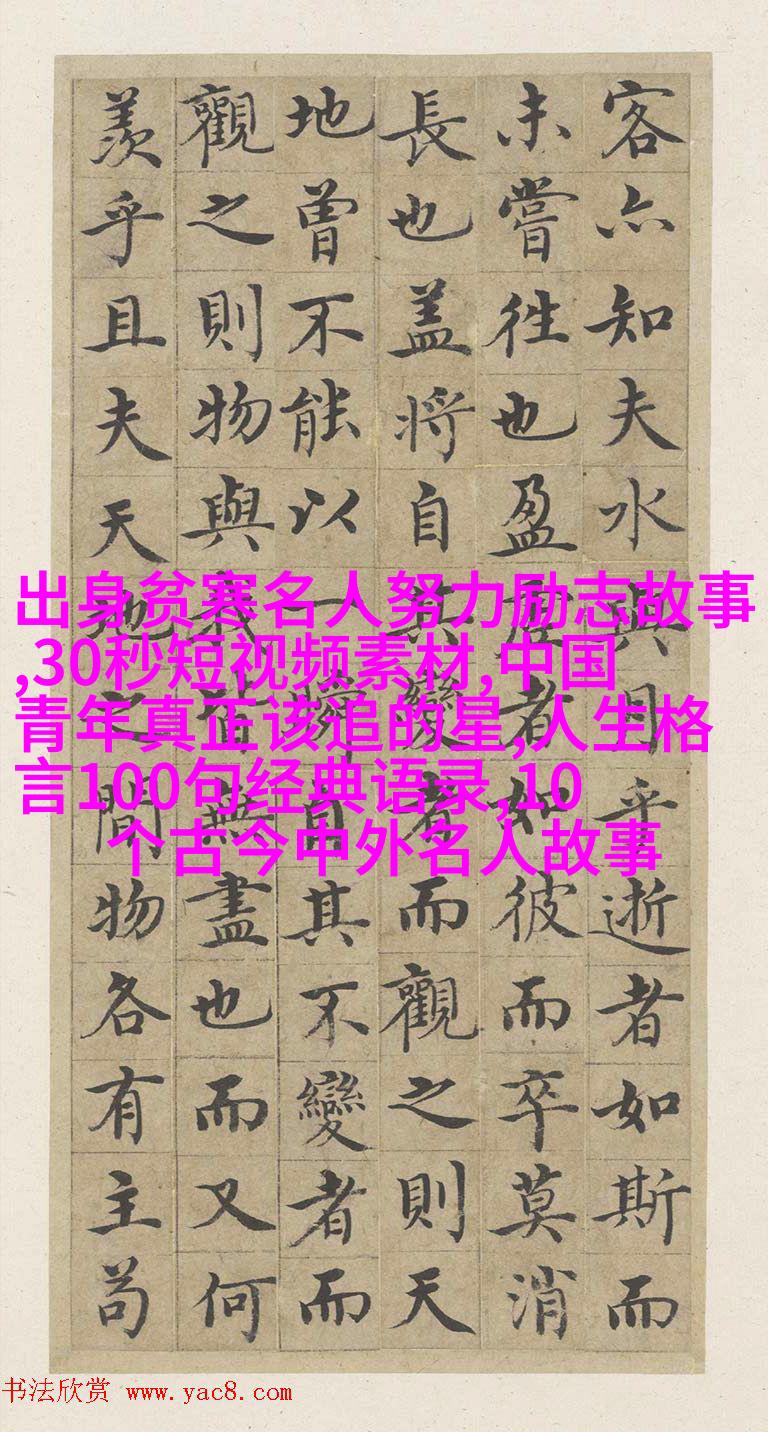 客亦知夫水與月乎逝者如斯而
未嘗往也盈虛者如彼而卒莫消
長也盖將自其變者而觀之則天
地曾不能以一瞬自其不變者而
觀之則物與我皆無盡也而又何
羨乎且夫天地之間物各有主苟
出身贫寒名人努力励志故事
,30秒短视频素材,中国
青年真正该追的星,人生格
言100句经典语录,10
个古今中外名人故事
书法欣赏 www.yac8.com